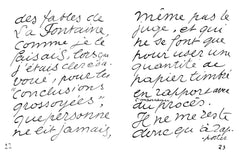 des fables de
La Fontaine,
comme je le
faisais, lorsque
j'étais clerc d'a-
voué, pour les
conclusions
grossoyées,
que personne
ne lit jamais,
22
même pas le
juge, et qui
ne se font que
pour user une
quantité de
papier timbré
en rapport avec
du procès.
Il ne me reste
donc qu'à rap-
porter
23